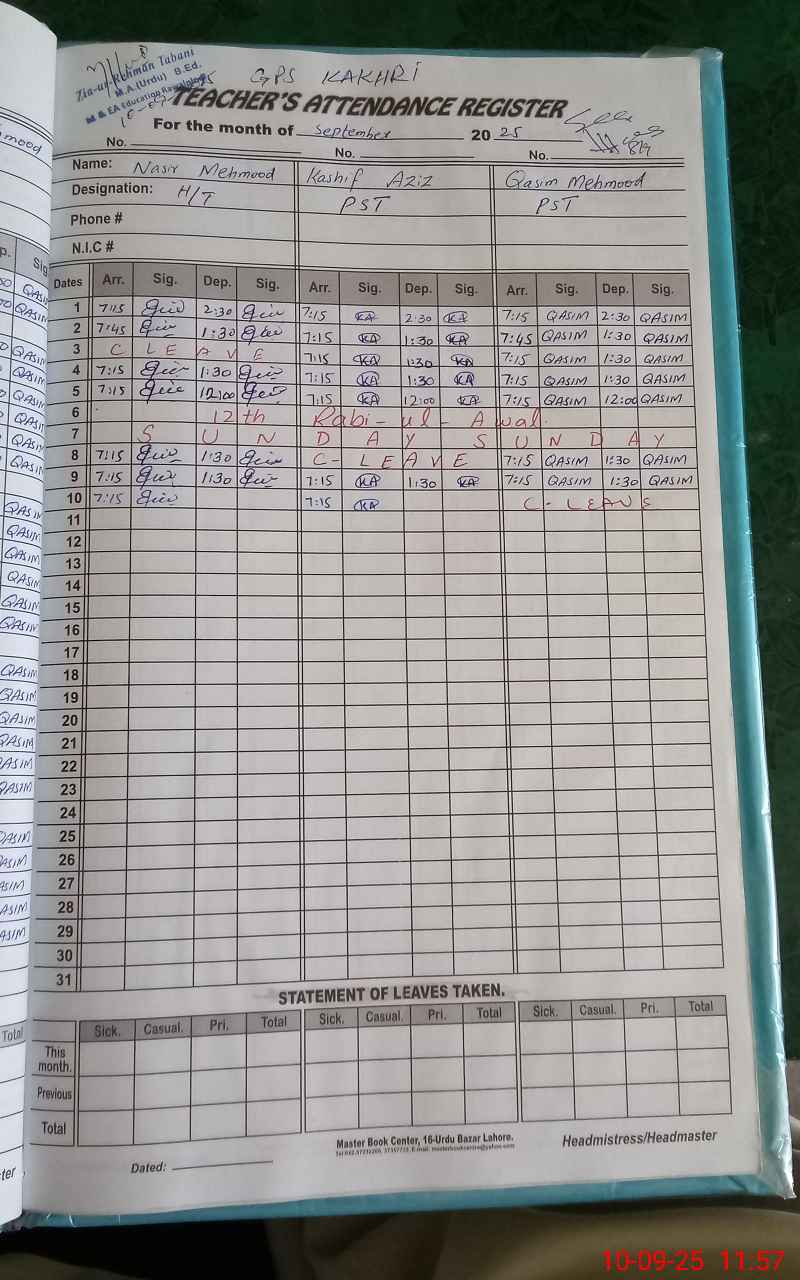 GPS KAKHRI
Zia-ur-Rehman Tabani
M.A.(Urdu) B.Ed.
TEACHER'S ATTENDANCE REGISTER
For the month of September 2025
No. No. No.
Name: Nasir Mehmood Kashif Aziz Qasim Mehmood
Designation: H/T PST PST
Phone #
N.I.C #
Dates Arr. Sig. Dep. Sig. Arr. Sig. Dep. Sig. Arr. Sig. Dep. Sig.
1 7:15 2:30 7:15 KA 2:30 KA 7:15 QASIM 2:30 QASIM
2 7:45 1:30 7:15 KA 1:30 KA 7:45 QASIM 1:30 QASIM
3 C LEAVE 7:15 KA 1:30 KA 7:15 QASIM 1:30 QASIM
4 7:15 1:30 7:15 KA 1:30 KA 7:15 QASIM 1:30 QASIM
5 7:15 12:00 7:15 KA 12:00 KA 7:15 QASIM 12:00 QASIM
6 12th Rabi-ul-Awal.
7 SUNDAY SUNDAY
8 7:15 1:30 C-LEAVE 7:15 QASIM 1:30 QASIM
9 7:15 1:30 7:15 KA 1:30 KA 7:15 QASIM 1:30 QASIM
10 7:15 7:15 KA C-LEAVE
11
12
13
14
15
16
17
18
19
20
21
22
23
24
25
26
27
28
29
30
31
STATEMENT OF LEAVES TAKEN.
Sick. Casual. Pri. Total Sick. Casual. Pri. Total Sick. Casual. Pri. Total
This month.
Previous
Total
Master Book Center, 16-Urdu Bazar Lahore.
Dated: Headmistress/Headmaster
10-09-25 11:57